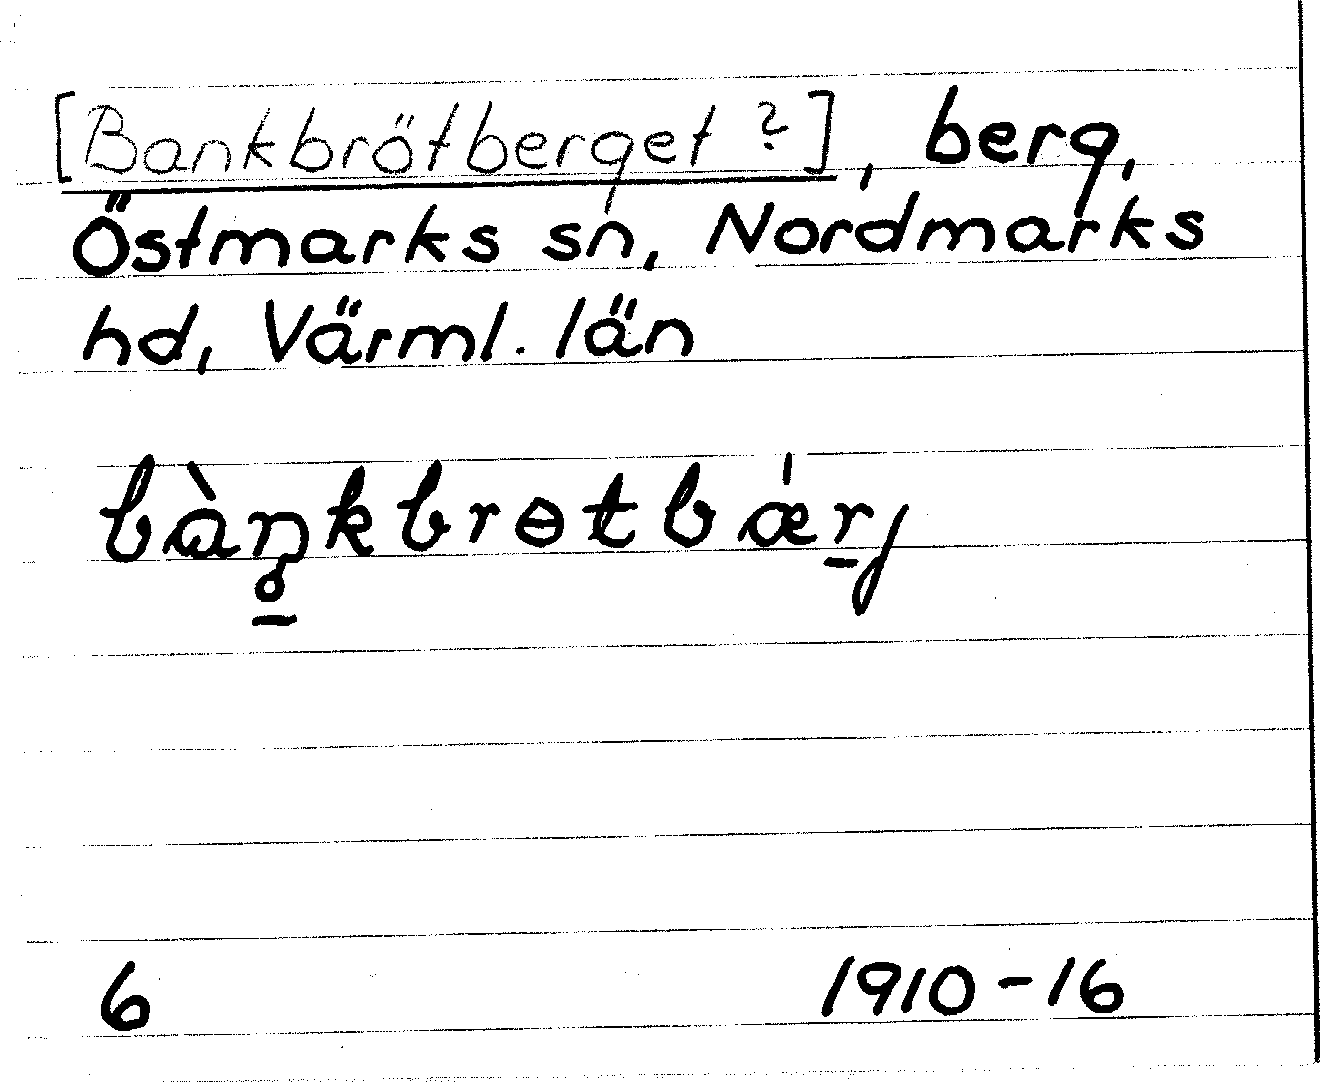 [Bankbrötberget ?], berg,
Östmarks sn, Nordmarks
hd, Värml. län
bàŋ̥̱kbrɵtbǽṟj
6 1910-16